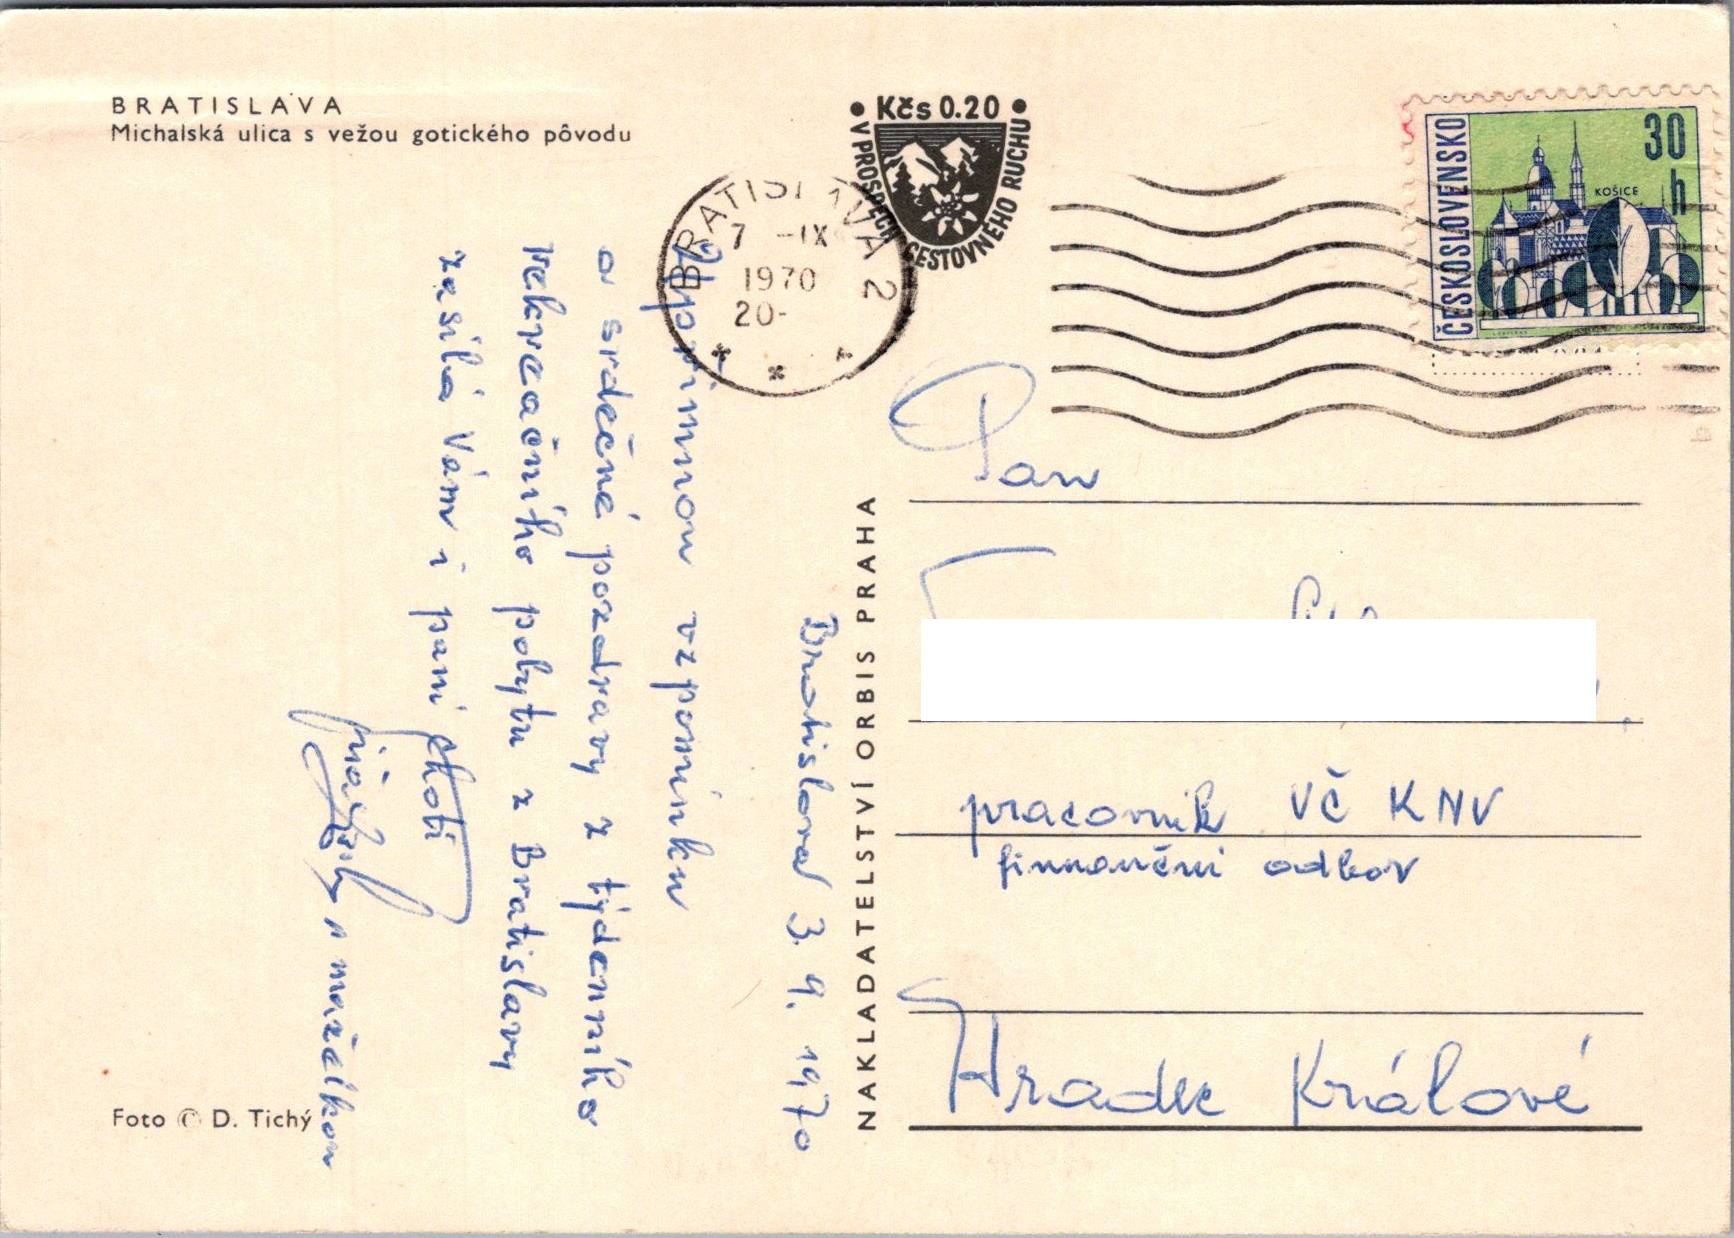 BRATISLAVA
Michalská ulica s vežou gotického pôvodu
Kčs 0.20
V PROSPECH CESTOVNÉHO RUCHU
BRATISLAVA 2
7 -IX
1970
20-
ČESKOSLOVENSKO
30 h
KOŠICE
Bratislava 3. 9. 1970
Upřímnou vzpomínku
a srdečné pozdravy z týdenního
rekreačního pobytu z Bratislavy
zasílá Vám i paní choti
s manželkou
NAKLADATELSTVÍ ORBIS PRAHA
Pan
pracovník VČ KNV
finanční odbor
Hradec Králové
Foto © D. Tichý